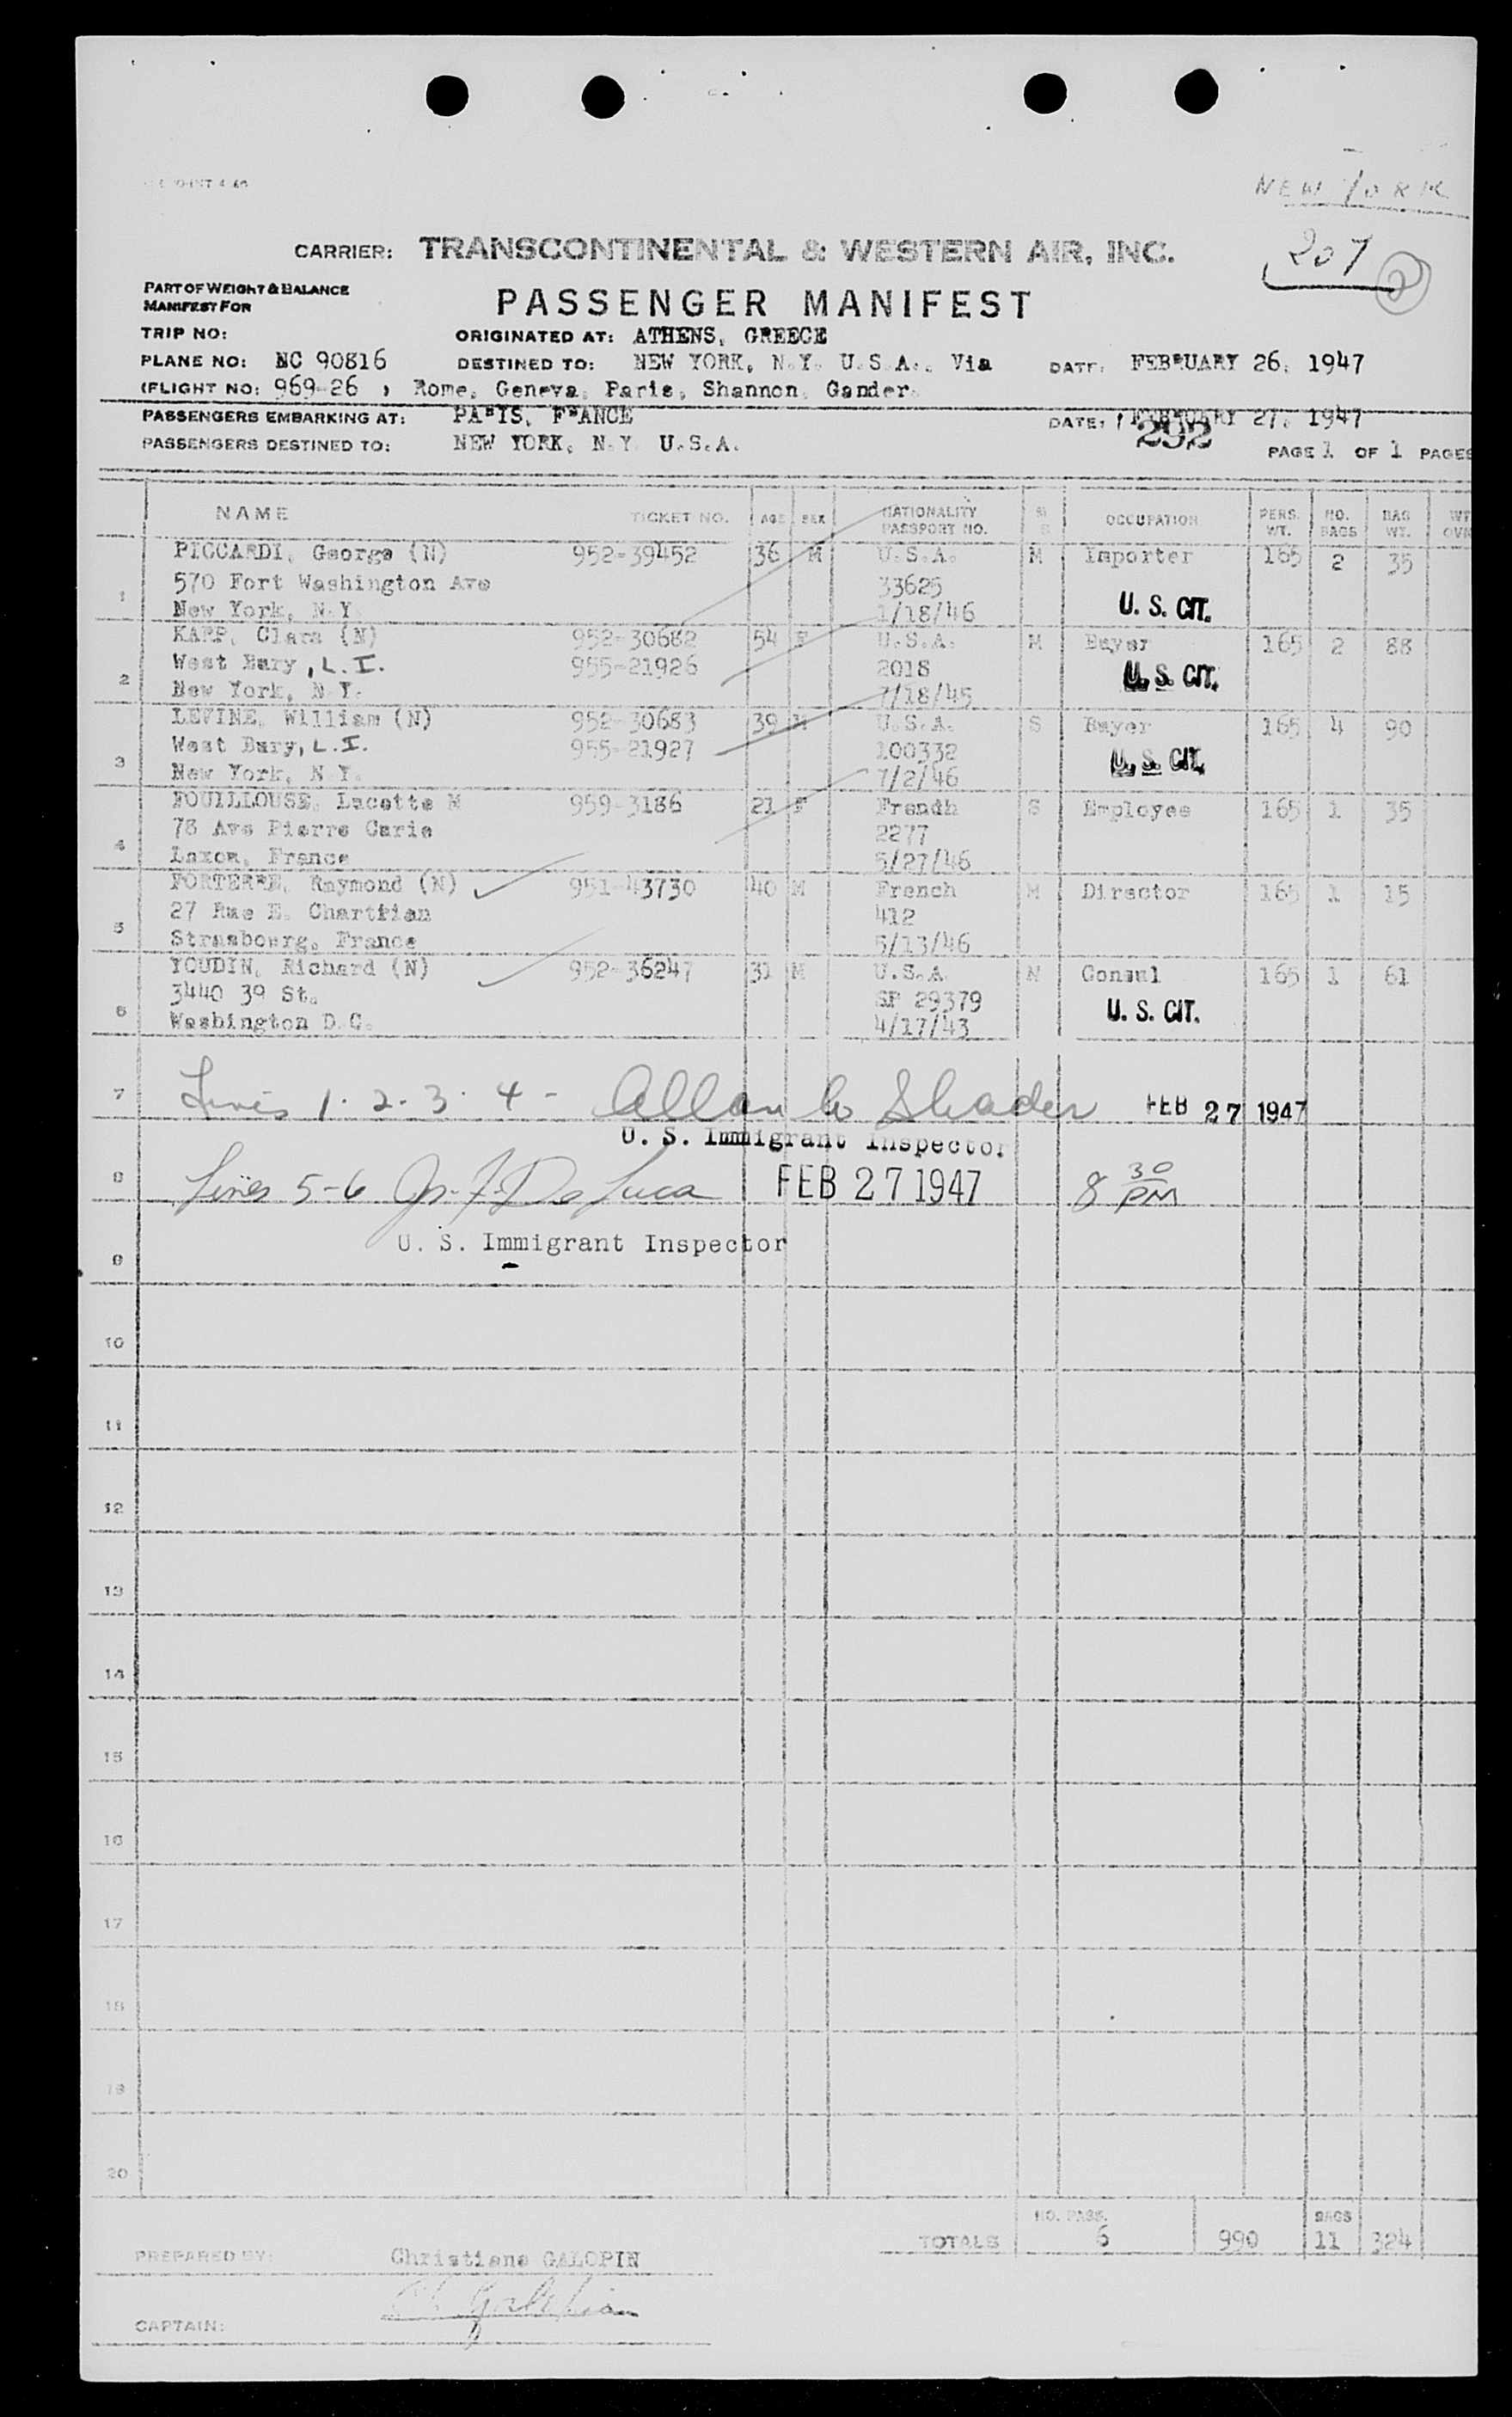 NEW YORK
207
2
CARRIER: TRANSCONTINENTAL & WESTERN AIR, INC.
PART OF WEIGHT & BALANCE
MANIFEST FOR
PASSENGER MANIFEST
TRIP NO: ORIGINATED AT: ATHENS, GREECE
PLANE NO: NC 90816 DESTINED TO: NEW YORK, N.Y. U.S.A., Via DATE: FEBRUARY 26, 1947
(FLIGHT NO: 969-26 ) Rome, Geneva, Paris, Shannon, Gander.
PASSENGERS EMBARKING AT: PARIS, FRANCE DATE: FEBRUARY 27, 1947
292
PASSENGERS DESTINED TO: NEW YORK, N.Y. U.S.A. PAGE 1 OF 1 PAGES
NAME TICKET NO. AGE SEX NATIONALITY PASSPORT NO. OCCUPATION PERS. WT. NO. BAGS BAG WT.
PICCARDI, George (N) 952-39452 36 M U.S.A. M Importer 165 2 35
570 Fort Washington Ave 33625
1 New York, N.Y. 1/18/46 U. S. CIT.
KARP, Clara (N) 952-30682 54 F U.S.A. M Buyer 165 2 88
West Bury, L.I. 955-21926 2018 U. S. CIT.
2 New York, N.Y. 7/18/45
LEVINE, William (N) 952-30683 39 M U.S.A. S Buyer 165 4 90
West Bury, L.I. 955-21927 100332 U. S. CIT.
3 New York, N.Y. 7/2/46
FOUILLOUSE, Lucette M 959-3186 21 F Frendh S Employee 165 1 35
78 Ave Pierre Curie 2277
4 Laxou, France 5/27/46
FORTERRE, Raymond (N) 951-43730 40 M French M Director 165 1 15
27 Rue E. Chartrian 412
5 Strasbourg, France 5/13/46
YOUDIN, Richard (N) 952-36247 31 M U.S.A. M Consul 165 1 61
3440 39 St. SP 29379
6 Washington D.C. 4/17/43 U. S. CIT.
7 Lines 1-2-3-4- Allan W Shader FEB 27 1947
U. S. Immigrant Inspector
8 Lines 5-6 Jos. F. De Luca FEB 27 1947 8 30 PM
U. S. Immigrant Inspector
9
10
11
12
13
14
15
16
17
18
19
20
NO. PASS. BAGS
TOTALS 6 990 11 324
PREPARED BY: Christiane GALOPIN
Ch Galopin
CAPTAIN: